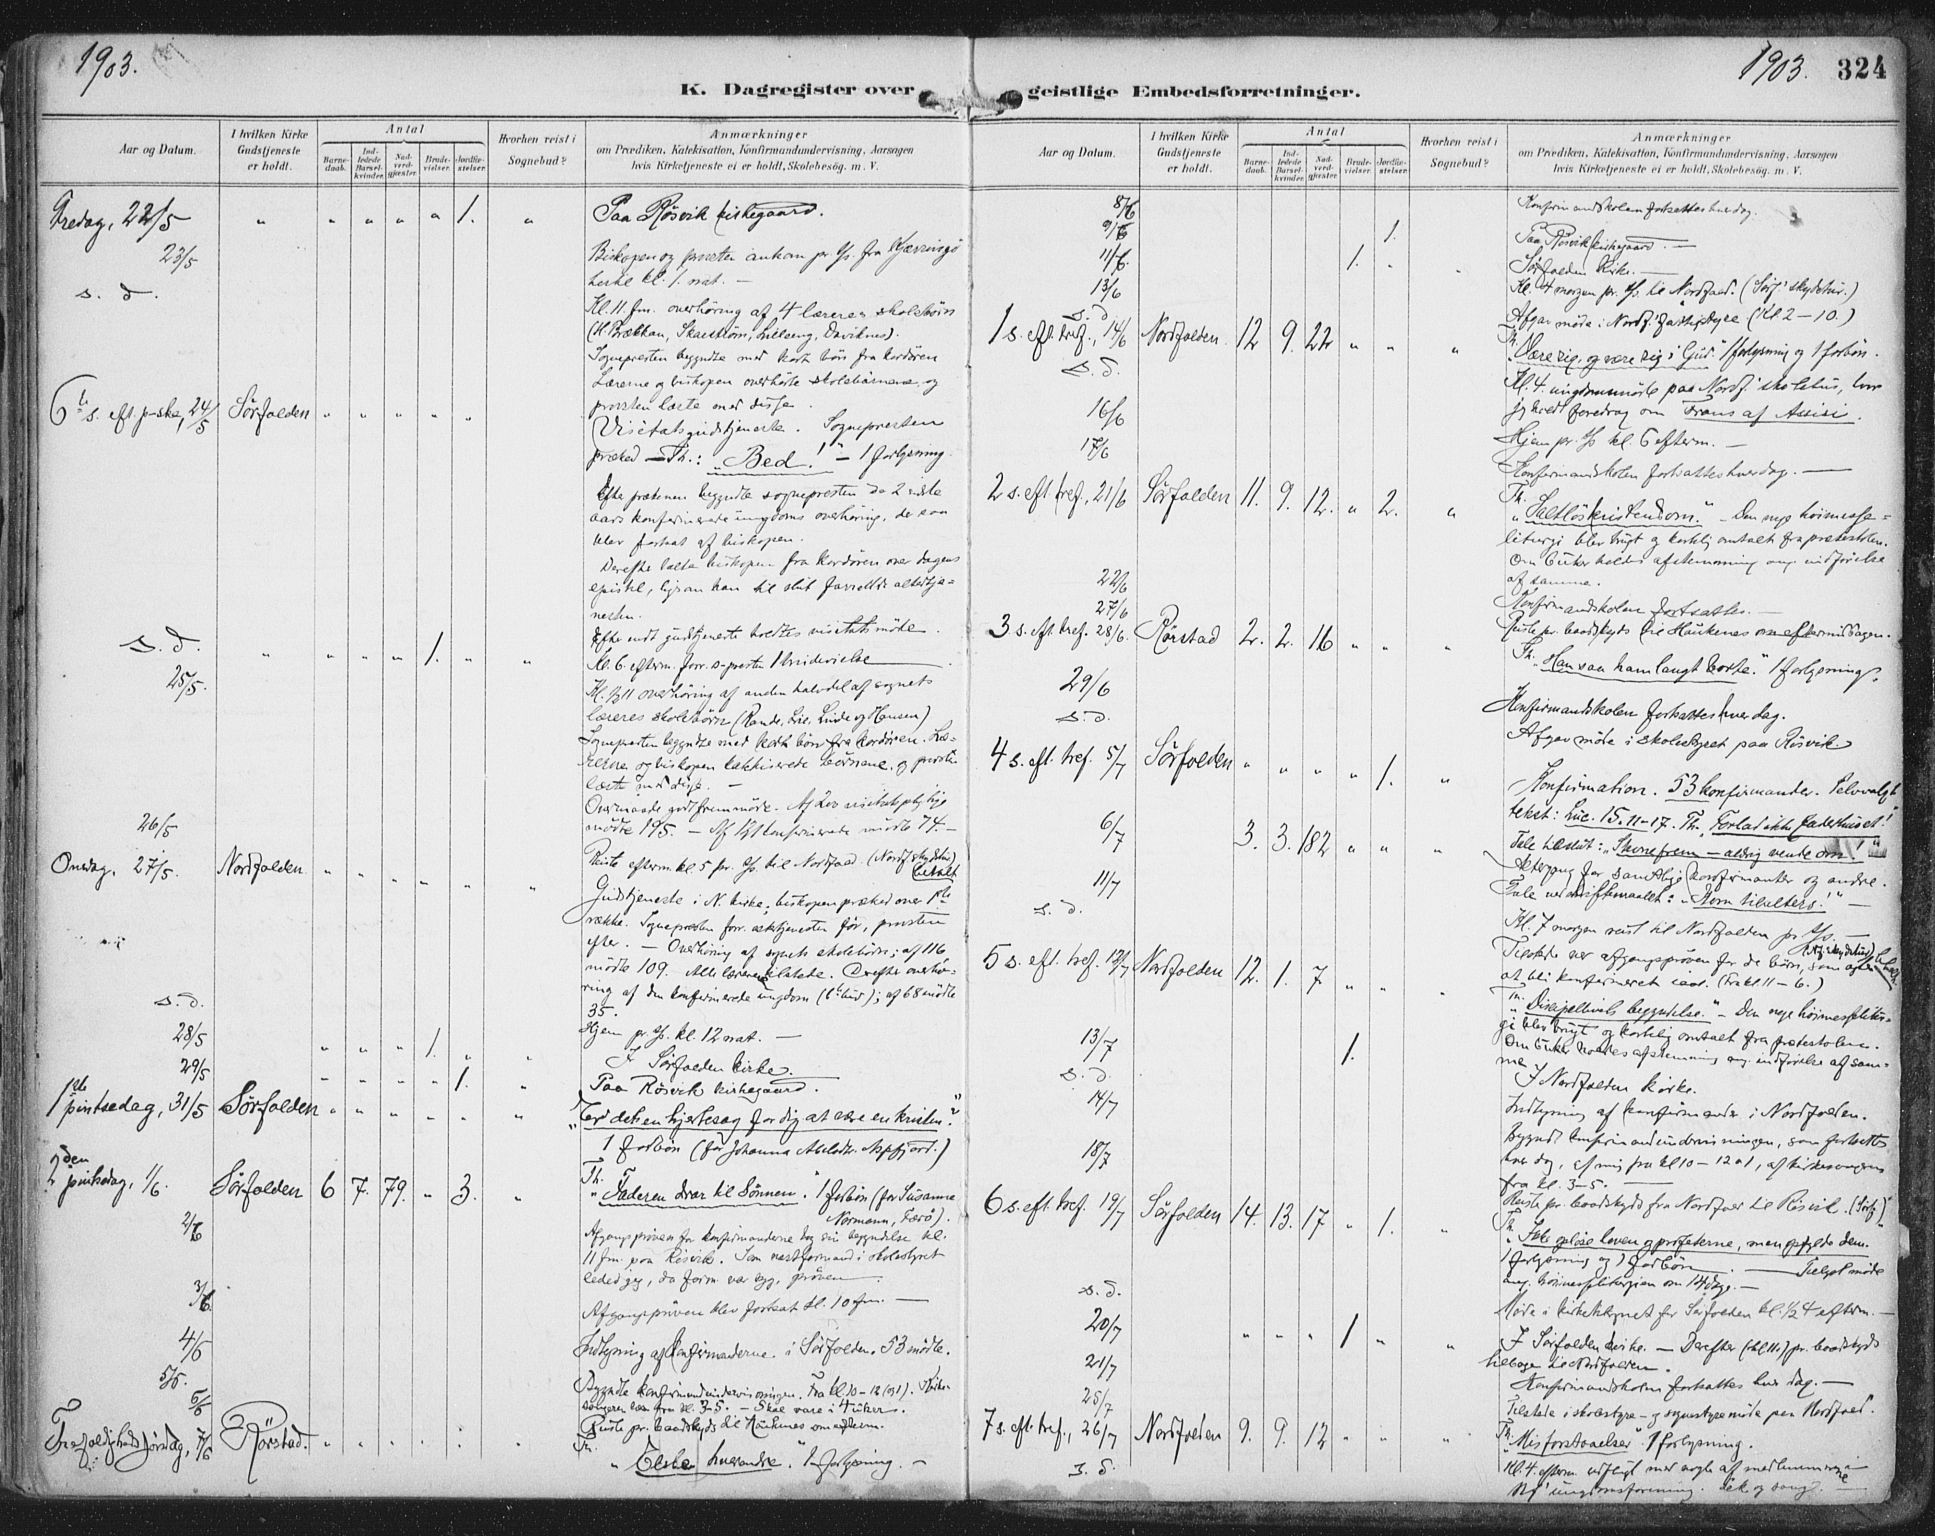 1903.
1903. 324
K. Dagregister over geistlige Embedsforretninger.
Aar og Datum. I hvilken Kirke Gudstjeneste er holdt. Antal Barnedaab. Indledede Barselkvinder. Nadverdgjæster. Brudevielser. Jordfæstelser. Hvorhen reist i Sognebud? Anmærkninger om Prædiken, Katekisation, Konfirmandundervisning, Aarsagen hvis Kirketjeneste ei er holdt, Skolebesög. m. V.
Fredag, 22/5 " " " " " 1. " Paa Rösvik kirkegaard.
23/5 Biskopen og provsten ankom pr. fra Kjærringö
hertil kl. 1. nat. —
s. d. Kl. 11 fm. overhöring af 4 læreres skolebörn
Sognepresten begyndte med bön fra kordören
Lærerne og biskopen overhörte skolebörnene, og
provsten læste med disse.
6te s. eft. p-ske, 24/5 Sörfolden " " " " " Visitatsgudstjeneste. Sognepresten
præked — Th.: "Bed!" — 1 forlysning.
Efter prækenen begyndte sognepresten de 2 sidste
aars konfirmerede ungdoms overhöring, der saa
blev fortsat af biskopen.
Derefter talte biskopen fra kordören over dagens
epistel, ligesom han til slut forrettede altertje=
nesten.
Efter endt gudstjeneste holdtes visitatsmöte.
s. d. " " " " 1. " " Kl. 6 efterm. forr. s-presten 1 brudevielse
25/5. Kl. 1/2 11 overhöring af anden halvdel af sognets
læreres skolebörn (Rande, Lie, Linde og Hansen)
Sognepresten begyndte med bön fra kordören. Læ=
rerne og biskopen katekiserede börnene, og provsten
læste med disse. —
Overmaade godt fremmöde. Af 200 visitatspligtige
mödte 195. — Af konfirmerede mödte 74. —
26/5 Reiste efterm kl 5 pr. til Nordfold. (Nordf. skydstur)
betalt
Onsdag, 27/5. Nordfolden " " " " " " Gudstjeneste i N. kirke; biskopen præked over 1ste
række. Sognepresten forr. altertjenesten för, provsten
efter. — Overhöring af sognets skolebörn; af 116
mödte 109. Alle lærerne tilstede. Derefter overhö=
ring af den konfirmerede ungdom; af 68 mödte
35.
s. d. Hjem pr. kl. 12 nat. —
28/5 " " " 1. " " I Sörfolden kirke.
29/5 " " " " 1. " Paa Rösvik kirkegaard.
1ste pintsedag, 31/5 Sörfolden " " " " " " "Er det en hjertesag for dig at være en kristen?"
1 forbön (för Johanna Abelsdtr. Aspfjord.)
2den pintsedag, 1/6. Sörfolden 6 7. 79. " 3. " Th. "Faderen drar til Sönnen." 1 forbön (for Susanna
Normann, Færö).
2/6 Afgangspröven for konfirmanderne tog sin begyndelse kl.
11 fm. paa Rösvik. Som viceformand i skolestyret
leded jeg, da form. var syg, pröven.
3/6. Afgangspröven blev fortsat kl. 10 fm. —
4/6 Indlysning af konfirmanderne i Sörfolden. 53 mödte.
5/6. Begyndte konfirmandundervisningen. Fra kl. 10 — 12 (og 1). Kirke=
sangeren læser fra kl. 3–5. — Skal vare i 4 uker.
6/6 Reiste pr. baadskyds til Haukenes om efterm.
Trefoldighedssöndag, 7/6 Rörstad. " " " " " " Th. "Elske hverandre." 1 forlysning. —
Aar og Datum. I hvilken Kirke Gudstjeneste er holdt. Antal Barnedaab. Indledede Barselkvinder. Nadverdgjæster. Brudevielser. Jordfæstelser. Hvorhen reist i Sognebud? Anmærkninger om Prædiken, Katekisation, Konfirmandundervisning, Aarsagen hvis Kirketjeneste ei er holdt, Skolebesög. m. V.
8/6 Konfirmandskolen fortsattes hver dag.
9/6 1. Paa Rösvik kirkegaard. —
11/6. 1. " " Sörfolden Kirke. —
13/6 Kl. 4 morgen pr. til Nordfold. (Sörf. skydstur.)
s. d. Afgav möde i Nordf. fattigstyre (kl 2 — 10.)
1 s. eft. tref., 14/6 Nordfolden. 12 9. 22 " " " Th. "Være rig, og være rig i Gud." 1 forlysning og 1 forbön.
s. d. Kl. 4 ungdomsmöte paa Nordf. skolehus, hvor
jeg holdt foredrag om Frans af Assisi.
16/6 Hjem pr. kl 6 efterm. —
17/6 Konfirmandskolen fortsattes hver dag. —
2 s. eft tref., 21/6 Sörfolden 11. 9. 12. " 2. " Th. "Saltlös kristendom." — Den nye höimesse=
liturgi blev brugt og kortelig omtalt fra prækestolen.
Om 6 uker holdes afstemning ang. indförelse
af samme.
22/6 Konfirmandskolen fortsattes. —
27/6 Reiste pr. baadskyds til Haukenes om eftermiddagen.
3 s. eft. tref. 28/6. Rörstad 2. 2. 16 " " " Th. "Han saa ham langt borte." 1 forlysning.
29/6 Konfirmandskolen fortsattes hver dag.
s. d. Afgav möde i skolestyret paa Rösvik.
4 s. eft. tref. 5/7 Sörfolden " " " " 1. " Konfirmation. 53 konfirmander. Selvvalgt
tekst: Luc. 15. 11–17. Th. "Forlad ikke faderhuset!"
Tale til slut: "Skone frem — aldrig vende om!"
6/7 3. 3. 182 " " " Altergang for samtlige konfirmanter og andre.
Tale ved skriftemaalet: "Kom til alters!" —
11/7 Kl. 7 morgen reist til Nordfolden pr. —
s. d. Tilstede ved afgangspröven for de börn, som agter
at bli konfirmeret iaar. (Fra kl. 11 — 6.)
5 s. eft. tref. 12/7 Nordfolden 12. 1. 7 " " " Th. "Discipellivets begyndelse." — Den nye höimesselitur=
gi blev brugt og kortelig omtalt fra prækestolen.
Om 6 uker holdes afstemning ang. indförelse af sam=
me.
13/7 1. I Nordfolden Kirke.
s. d. Indlysning af konfirmander i Nordfolden.
14/7 Begyndt konfirmandundervisningen, som fortsattes
hver dag, af mig fra kl 10 — 12 a 1, af kirkesangeren
fra kl. 3–5.
18/7 Reiste pr. baadskyds fra Nordfold til Rösvik. (Sörf.)
6 s. eft. tref. 19/7 Sörfolden 14. 13. 17 " 1. " Th. "Ikke oplöse loven og profeterne, men opfylde dem."
1 forlysning og 1 forbön. — Tillyst möte
ang. höimesseliturgien om 14 dage. —
s. d. Möde i kirketilsynet for Sörfolden kl. 1/2 4 efterm. —
20/7 " " " 1 " " I Sörfolden kirke. — Derefter (kl. 11) pr. baadskyds
tilbage til Nordfolden.
21/7 Konfirmandskolen fortsattes hver dag. —
25/7 Tilstede i skolestyre- og sognestyremöde paa Nordfold.
7 s. eft tref., 26/7 Nordfolden 9. 9. 12 " " " Th. "Misforstaaelser". 1 forlysning.
s. d. Kl. 4. efterm. udflugt med nogle af medlemmerne i
Nf. ungdomsforening. Lek og sang. —